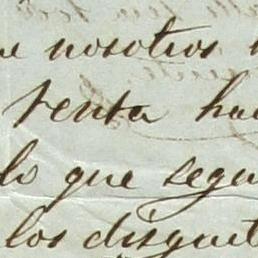 ue nosotros
renta hac
lo que segu
los disgust